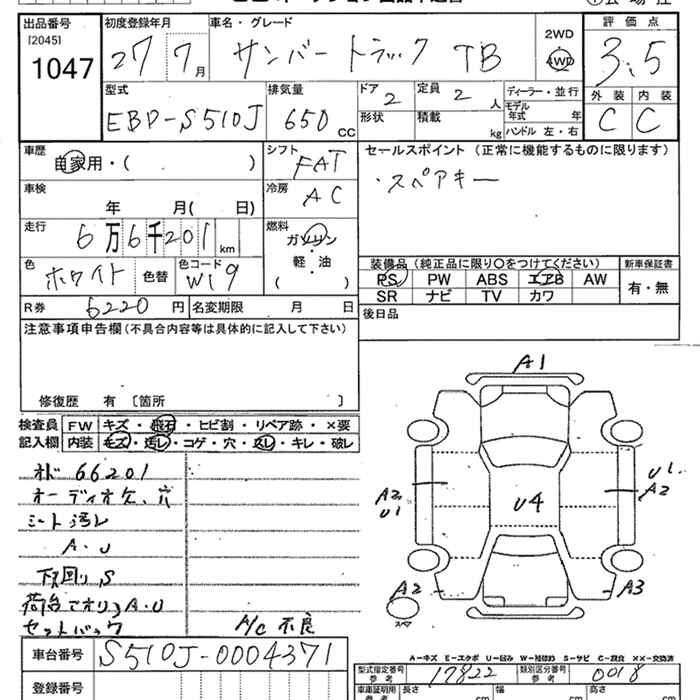 出品番号 初度登録年月 車名・グレード 評価点
[2045]
1047
27 7月 サンバートラック TB
2WD
4WD
3.5
型式 排気量 ドア 定員 ディーラー・並行 外装 内装
EBD-S510J 650 CC
2 2 人
モデル年式 年
形状 積載 kg ハンドル 左・右
C C
車歴 シフト セールスポイント (正常に機能するものに限ります)
自家用・( ) FAT
・スペアキー
車検 冷房
年 月( 日) AC
走行 燃料
6万6千201km ガソリン
軽・油
( )
色 色コード 装備品 (純正品に限り○をつけてください) 新車保証書
ホワイト 色替 W19
PS PW ABS エアB AW 有・無
SR ナビ TV カワ
R券 6220円 名変期限 月 日
後日品
注意事項申告欄 (不具合内容等は具体的に記入して下さい)
修復歴 有 〔箇所 〕
検査員 FW キズ・飛石・ヒビ割・リペア跡・×要
記入欄 内装 キズ・汚レ・コゲ・穴・スレ・キレ・破レ
オド 66201
オーディオ欠、穴
シート汚レ
A・U
下回り、S
荷台アオリ
A・U
セットバック
A/C 不良
A1
A2
U1
U4
U1
A2
A2
A3
スペア
A-キズ E-エクボ U-凹み W-補修跡 S-サビ C-腐食 ××-交換済
車台番号 S510J-0004371
型式指定番号 参考 17822 類別区分番号 参考 0018
登録番号
車庫証明用 参考 長さ cm 幅 cm 高さ cm